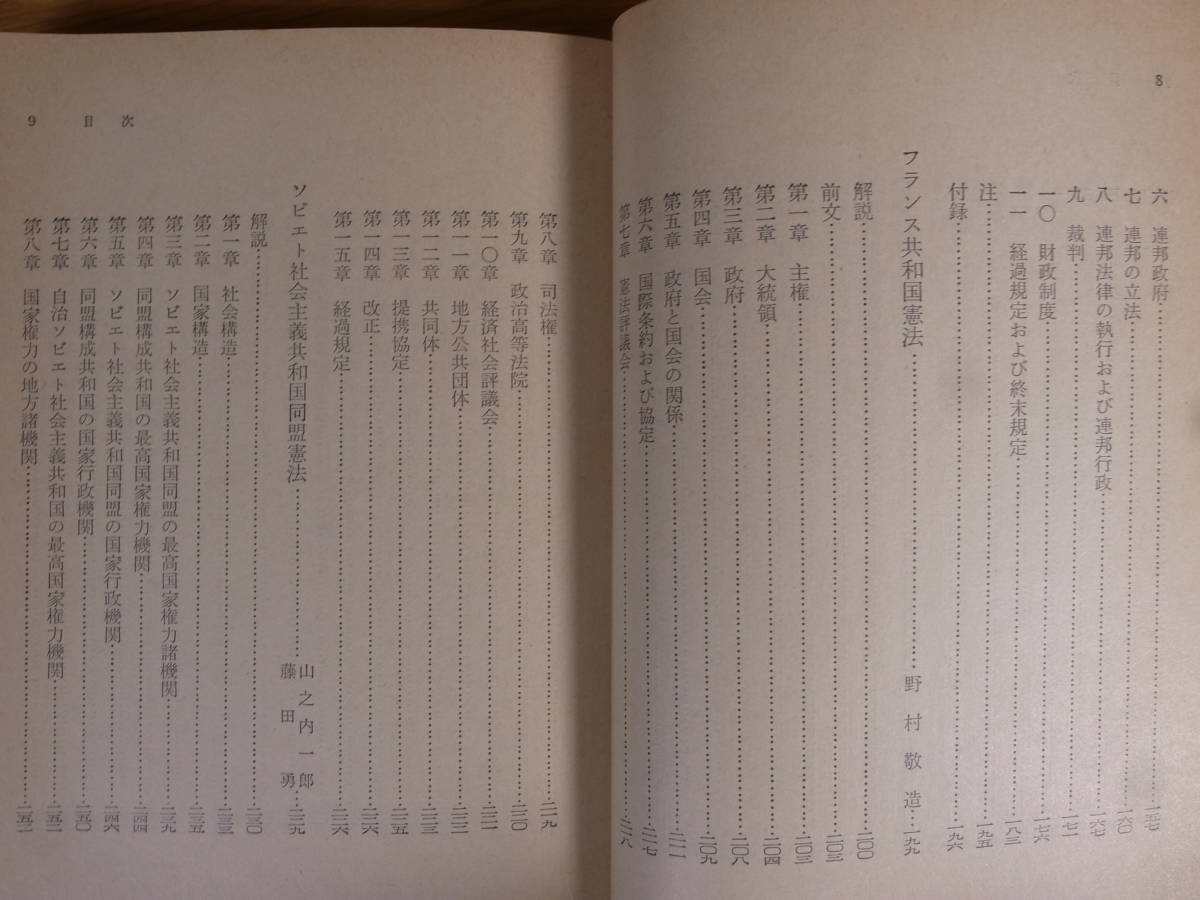 8
六　連邦政府……一五七
七　連邦の立法……一六〇
八　連邦法律の執行および連邦行政……一六七
九　裁判……一七一
一〇　財政制度……一七六
一一　経過規定および終末規定……一八三
注……一九五
付録……一九六
フランス共和国憲法……野村敬造…一九九
解説……二〇〇
前文……二〇三
第一章　主権……二〇三
第二章　大統領……二〇四
第三章　政府……二〇八
第四章　国会……二〇九
第五章　政府と国会の関係……二一一
第六章　国際条約および協定……二一七
第七章　憲法評議会……二一八
9　目次
第八章　司法権……二一九
第九章　政治高等法院……二二〇
第一〇章　経済社会評議会……二二一
第一一章　地方公共団体……二二二
第一二章　共同体……二二三
第一三章　提携協定……二二五
第一四章　改正……二二六
第一五章　経過規定……二二六
ソビエト社会主義共和国同盟憲法……山之内一郎
藤田勇…二二九
解説……二三〇
第一章　社会構造……二三三
第二章　国家構造……二三五
第三章　ソビエト社会主義共和国同盟の最高国家権力諸機関……二三九
第四章　同盟構成共和国の最高国家権力機関……二四四
第五章　ソビエト社会主義共和国同盟の国家行政機関……二四六
第六章　同盟構成共和国の国家行政機関……二五〇
第七章　自治ソビエト社会主義共和国の最高国家権力機関……二五二
第八章　国家権力の地方諸機関……二五二